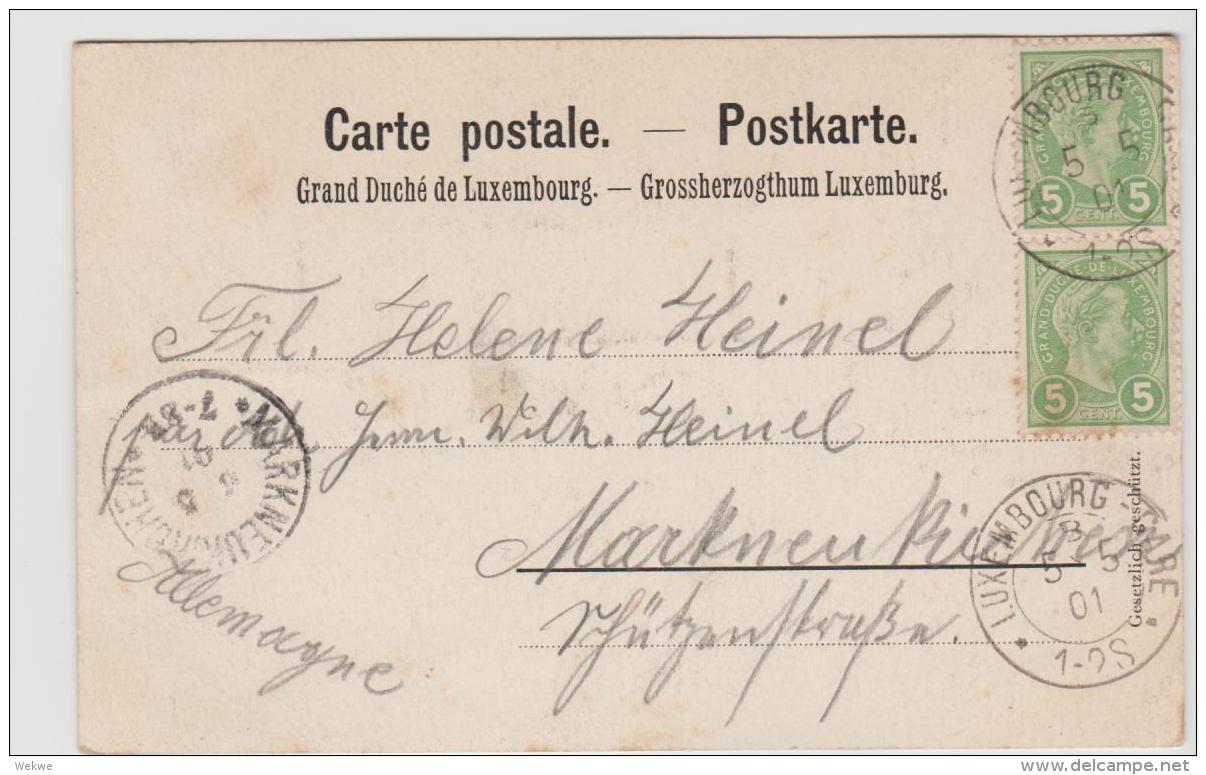 Carte postale. — Postkarte.
Grand Duché de Luxembourg. — Grossherzogthum Luxemburg.
GRAND-DUCHÉ-DE-LUXEMBOURG
5 CENT. 5
LUXEMBOURG GARE
B
5 5
01
1-2S
GRAND-DUCHÉ-DE-LUXEMBOURG
5 CENT. 5
Frl. Helene Heinel
Wilh. Heinel
Markneukirchen
Schützenstraße.
Allemagne
MARKNEUKIRCHEN
6 5
01
7-8
LUXEMBOURG GARE
B
5 5
01
1-2S
Gesetzlich geschützt.
Wekwe
delcampe.net